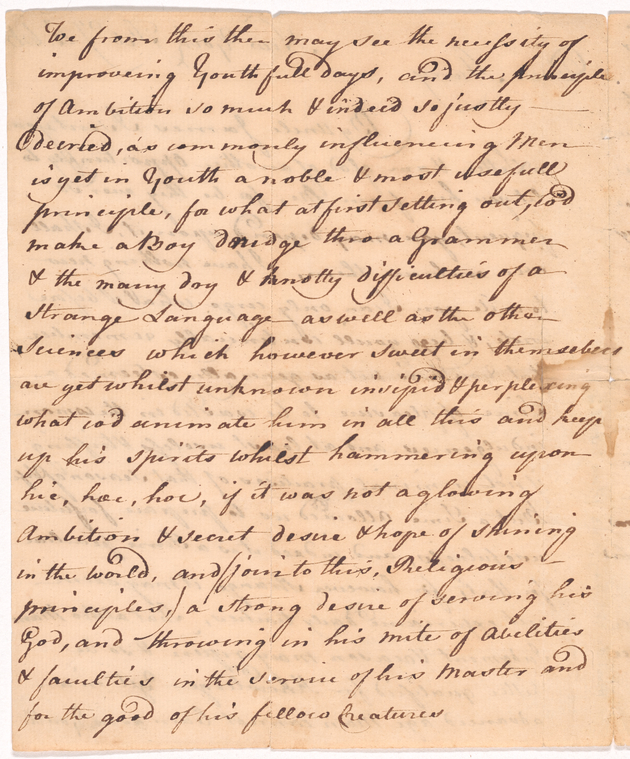 We from this then may see the necessity of
improveing Youthfull days, and the principle
of Ambition so much & indeed so justly
decried, as commonly influencing Men
is yet in Youth a noble & most usefull
principle, for what at first setting out, wo'd
make a Boy drudge thro a Grammer
& the many dry & knotty difficulties of a
strange Language as well as the other
Sciences which however sweet in themselves
are yet whilst unknown insipid & perplexing
what wod animate him in all this and keep
up his spirits whilst hammering upon
hic, hæc, hoc, if it was not a glowing
Ambition & secret desire & hope of shining
in the world, and (join to this, Religious
principles,) a strong desire of serving his
God, and throwing in his mite of Abilities
& faculties in the service of his Master and
for the good of his fellow Creatures